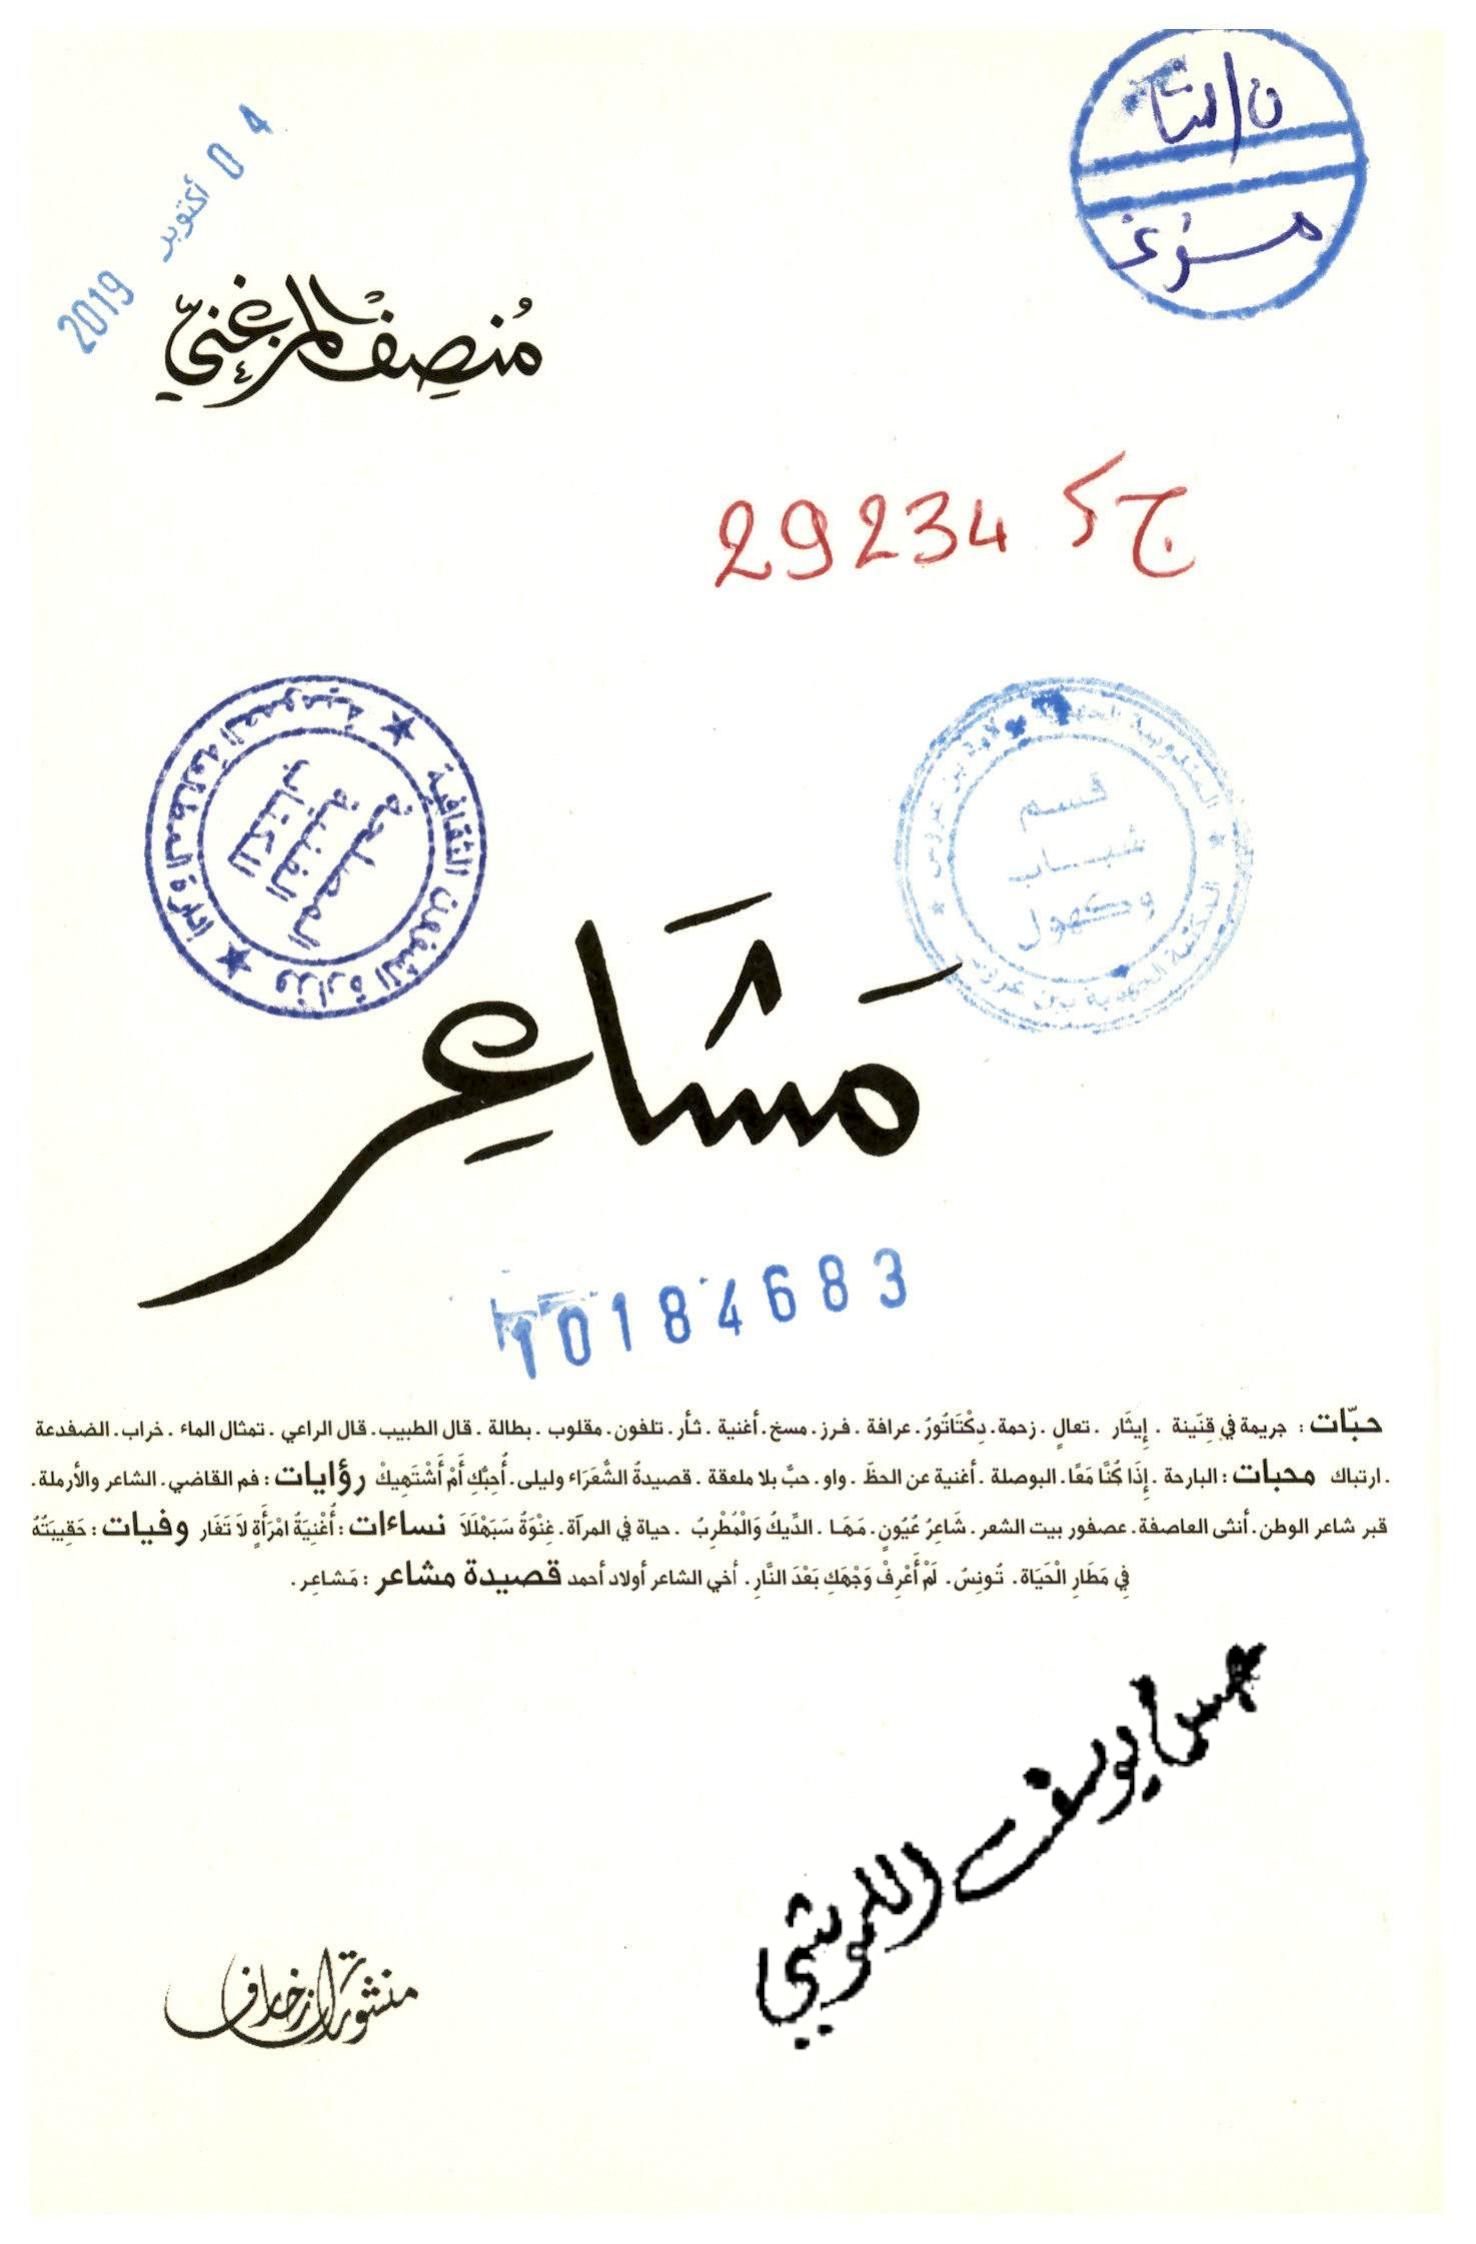 04 أكتوبر 2019
مُنصِف المزغنّي
ج 29234
وزارة الشؤون الثقافية ★ إدارة المطالعة العمومية ★
المصلحة
الفنية
الكتاب
المكتبة الجهوية ببن عروس
قسم
شباب
وكهول
مَشَاعِر
10184683
حبّات : جريمة في قِنّينة . إِيثَار . تعالٍ . زحمة. دِكْتَاتُورُ. عرافة . فرز. مسخ. أغنية . ثأر. تلفون. مقلوب . بطالة . قال الطبيب. قال الراعي . تمثال الماء . خراب. الضفدعة
. ارتباك محبات : البارحة . إِذَا كُنَّا مَعًا. البوصلة . أغنية عن الحظّ . واو. حبٌّ بلا ملعقة . قصيدةُ الشُّعَرَاء وليلى. أُحِبُّكِ أَمْ أَشْتَهِيكْ رؤايات : فم القاضي. الشاعر والأرملة.
قبر شاعر الوطن. أنثى العاصفة. عصفور بيت الشعر. شَاعِرُ عُيُونٍ. مَهَا. الدِّيكُ وَالْمُطْرِبُ . حياة في المرآة. غِنْوَةُ سَبَهْلَلَا نساءات : أُغْنِيَةُ امْرَأَةٍ لاَ تَغَار وفيات : حَقِيبَتُهُ
فِي مَطَارِ الْحَيَاة. تُونِسُ. لَمْ أَعْرِفْ وَجْهَكِ بَعْدَ النَّارِ. أخي الشاعر أولاد أحمد قصيدة مشاعر : مَشاعِر.
منشورات زخارف